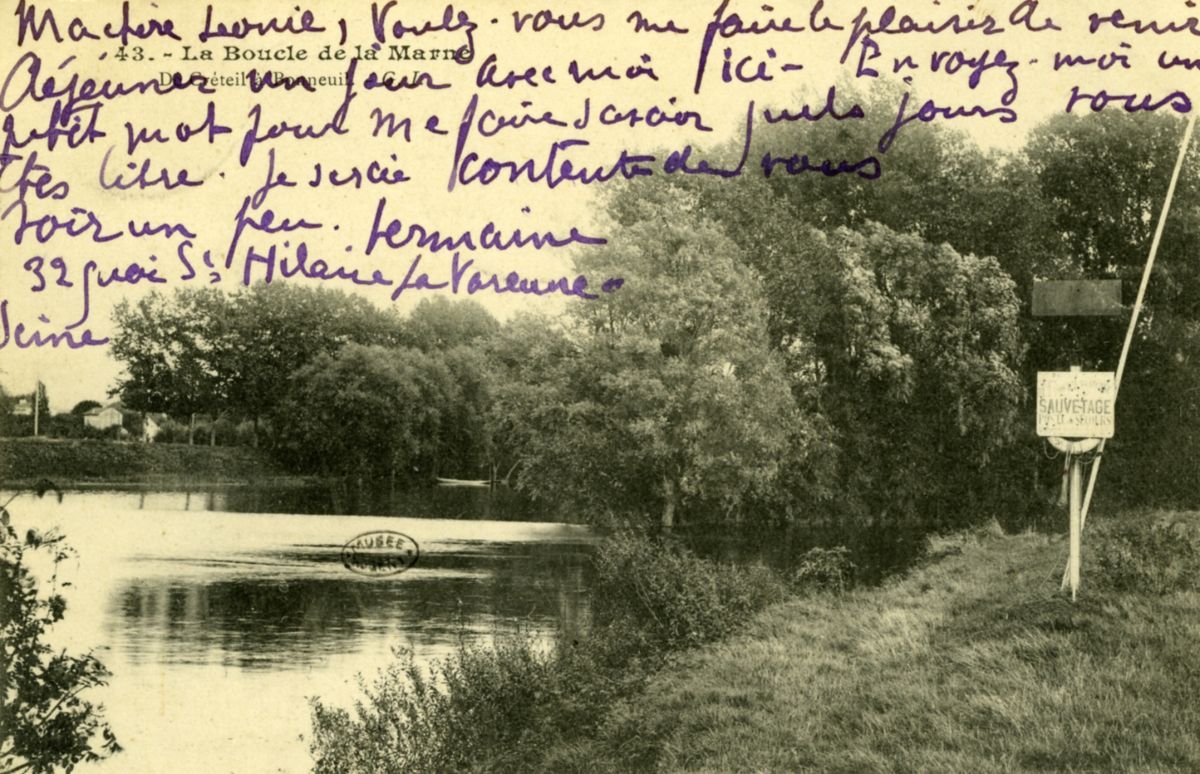 Ma chère Leonie, Voulez-vous me faire le plaisir de venir
43. - La Boucle de la Marne
De Créteil à Bonneuil. - C. J.
déjeuner un jour avec moi ici - Envoyez-moi un
petit mot pour me faire savoir quels jours vous
êtes libre. Je serais contente de vous
voir un peu. Germaine
32 quai St Hilaire La Varenne-
Seine
SAUVETAGE
MUSÉE